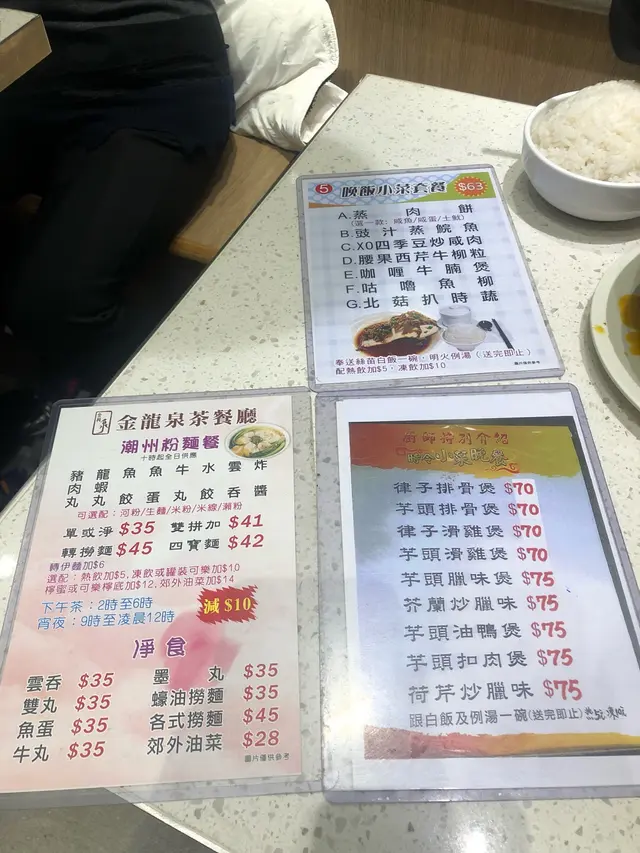 5 晚飯小菜套餐 $63
A.蒸肉餅
(選一款: 咸魚/咸蛋/土魷)
B.豉汁蒸鯇魚
C.XO四季豆炒咸肉
D.腰果西芹牛柳粒
E.咖喱牛腩煲
F.咕嚕魚柳
G.北菇扒時蔬
奉送絲苗白飯一碗，明火例湯（送完即止）
配熱飲加$5，凍飲加$10
圖片僅供參考
金龍泉茶餐廳
潮州粉麵餐
十時起全日供應
豬肉丸 龍蝦丸 魚餃 魚蛋 牛丸 水餃 雲吞 炸醬
可選配：河粉/生麵/米粉/米線/瀨粉
單或淨 $35 雙拼加 $41
轉撈麵 $45 四寶麵 $42
轉伊麵加$6
選配：熱飲加$5, 凍飲或罐裝可樂加$10
檸蜜或可樂檸底加$12, 郊外油菜加$14
下午茶：2時至6時
宵夜：9時至凌晨12時
減 $10
淨食
雲吞 $35 墨丸 $35
雙丸 $35 蠔油撈麵 $35
魚蛋 $35 各式撈麵 $45
牛丸 $35 郊外油菜 $28
圖片僅供參考
廚師特別介紹
時令小菜晚煲
律子排骨煲 $70
芋頭排骨煲 $70
律子滑雞煲 $70
芋頭滑雞煲 $70
芋頭臘味煲 $75
芥蘭炒臘味 $75
芋頭油鴨煲 $75
芋頭扣肉煲 $75
荷芹炒臘味 $75
跟白飯及例湯一碗(送完即止)